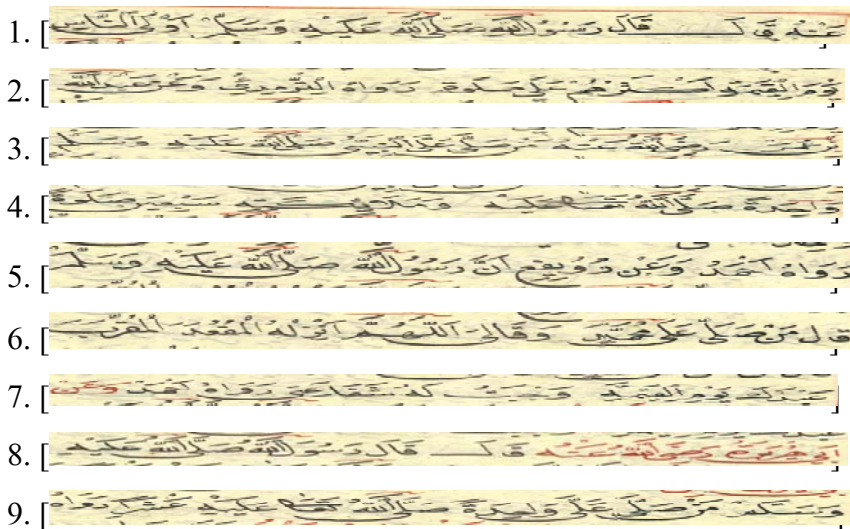 1. [عنه قال قال رسول الله صلى الله عليه وسلم أولى الناس]
2. [يوم القيمة أكثرهم على صلوة رواه الترمذي وعن عبد الله]
3. [رضي الله عنه من صلى على النبي صلى الله عليه وسلم]
4. [واحدة صلى الله عليه وملائكته سبعين صلوة]
5. [رواه أحمد وعن رويفع أن رسول الله صلى الله عليه وسلم]
6. [قال من صلى على محمد وقال اللهم أنزله المقعد المقرب]
7. [عندك يوم القيمة وجبت له شفاعتي رواه أحمد وعن]
8. [أبي هريرة رضي الله عنه قال قال رسول الله صلى الله عليه]
9. [وسلم من صلى علي واحدة صلى الله عليه عشرا رواه]